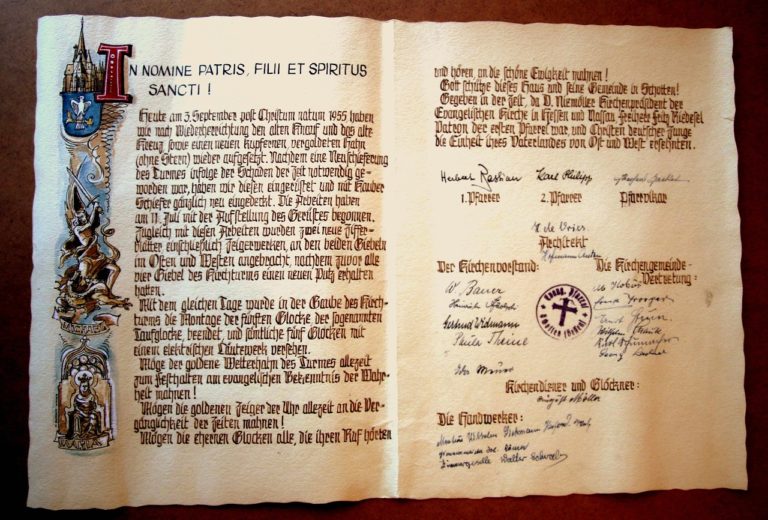 IN NOMINE PATRIS, FILII ET SPIRITUS
SANCTI!
Heute am 3. September post Christum natum 1955 haben
wir nach Wiederherrichtung den alten Knauf und das alte
Kreuz sowie einen neuen kupfernen, vergoldeten Hahn
(ohne Stern) wieder aufgesetzt. Nachdem eine Neuschieferung
des Turmes infolge der Schäden der Zeit notwendig ge-
worden war, haben wir diesen eingerüstet und mit Kauber
Schiefer gänzlich neu eingedeckt. Die Arbeiten haben
am 11. Juli mit der Aufstellung des Gerüstes begonnen.
Zugleich mit diesen Arbeiten wurden zwei neue Ziffer-
blätter einschließlich Zeigerwerken, an den beiden Giebeln
im Osten und Westen angebracht, nachdem zuvor alle
vier Giebel des Kirchturms einen neuen Putz erhalten
hatten.
Mit dem gleichen Tage wurde in der Gaube des Kirch-
turms die Montage der fünften Glocke, der sogenannten
Taufglocke, beendet, und sämtliche fünf Glocken mit
einem elektrischen Läutewerk versehen.
Möge der goldene Wetterhahn des Turmes allezeit
zum Festhalten am evangelischen Bekenntnis der Wahr-
heit mahnen!
Mögen die goldenen Zeiger der Uhr allezeit an die Ver-
gänglichkeit der Zeiten mahnen!
Mögen die ehernen Glocken alle, die ihren Ruf hörten
MICHAEL
MARIA
und hören, an die schöne Ewigkeit mahnen!
Gott schütze dieses Haus und seine Gemeinde in Schotten!
Gegeben in der Zeit, da D. Niemöller Kirchenpräsident der
Evangelischen Kirche in Hessen und Nassau, Freiherr Fritz Riedesel
Patron der ersten Pfarrei war, und Christen deutscher Junge
die Einheit ihres Vaterlandes von Ost und West ersehnten.
Herbert Bastian Karl Philipp
1. Pfarrer 2. Pfarrer Pfarrvikar
de Vries
Architekt
Der Kirchenvorstand: Die Kirchengemeinde-
Vertretung:
W. Bauer
Heinrich
Gertrud Widmann
Paula Theine
Kirchendiener und Glöckner:
August Möller
Die Handwerker:
Wilhelm
Walter